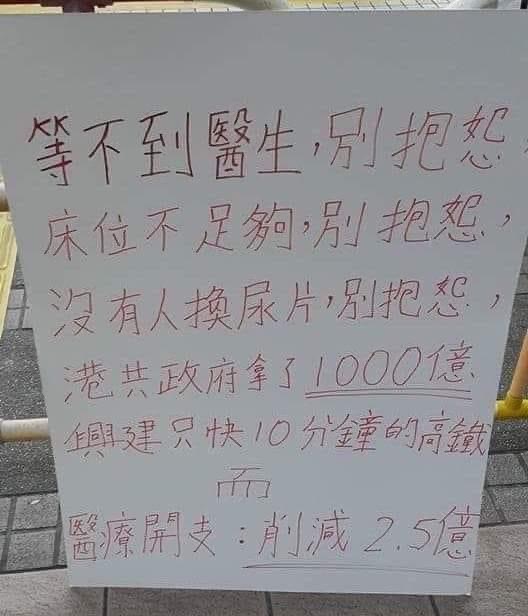 等不到醫生，別抱怨，
床位不足夠，別抱怨，
沒有人換尿片，別抱怨，
港共政府拿了1000億
興建只快10分鐘的高鐵
而
醫療開支：削減2.5億